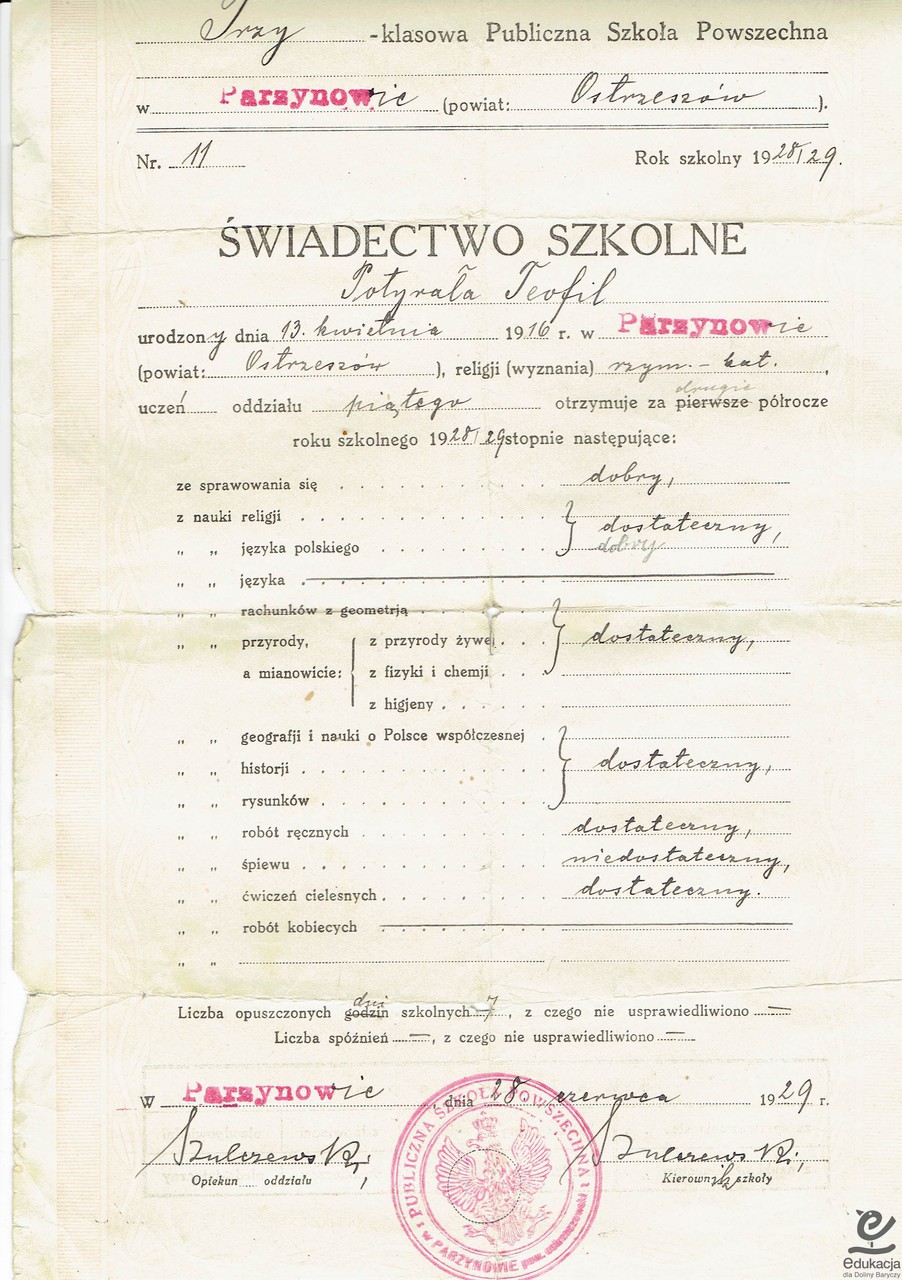 Trzy -klasowa Publiczna Szkoła Powszechna
w Parzynowie (powiat: Ostrzeszów ).
Nr. 11 Rok szkolny 1928/29.
ŚWIADECTWO SZKOLNE
Potyrała Teofil
urodzony dnia 13. kwietnia 1916 r. w Parzynowie
(powiat: Ostrzeszów ), religji (wyznania) rzym.-kat.,
drugie
uczeń oddziału piątego otrzymuje za pierwsze półrocze
roku szkolnego 1928/29 stopnie następujące:
ze sprawowania się dobry,
z nauki religji
dostateczny,
„ „ języka polskiego dobry
„ „ języka
„ „ rachunków z geometrją
„ „ przyrody, z przyrody żywej dostateczny,
a mianowicie: z fizyki i chemji
z higjeny
„ „ geografji i nauki o Polsce współczesnej
„ „ historji dostateczny,
„ „ rysunków
„ „ robót ręcznych dostateczny,
„ „ śpiewu niedostateczny,
„ „ ćwiczeń cielesnych dostateczny.
„ „ robót kobiecych
„ „
dni
Liczba opuszczonych godzin szkolnych 7, z czego nie usprawiedliwiono —
Liczba spóźnień —, z czego nie usprawiedliwiono —
W Parzynowie, dnia 28 czerwca 1929 r.
Szulczewski Szulczewski
Opiekun oddziału Kierownik szkoły
PUBLICZNA SZKOŁA POWSZECHNA
w PARZYNOWIE pow. ostrzeszowski
Edukacja
dla Doliny Baryczy